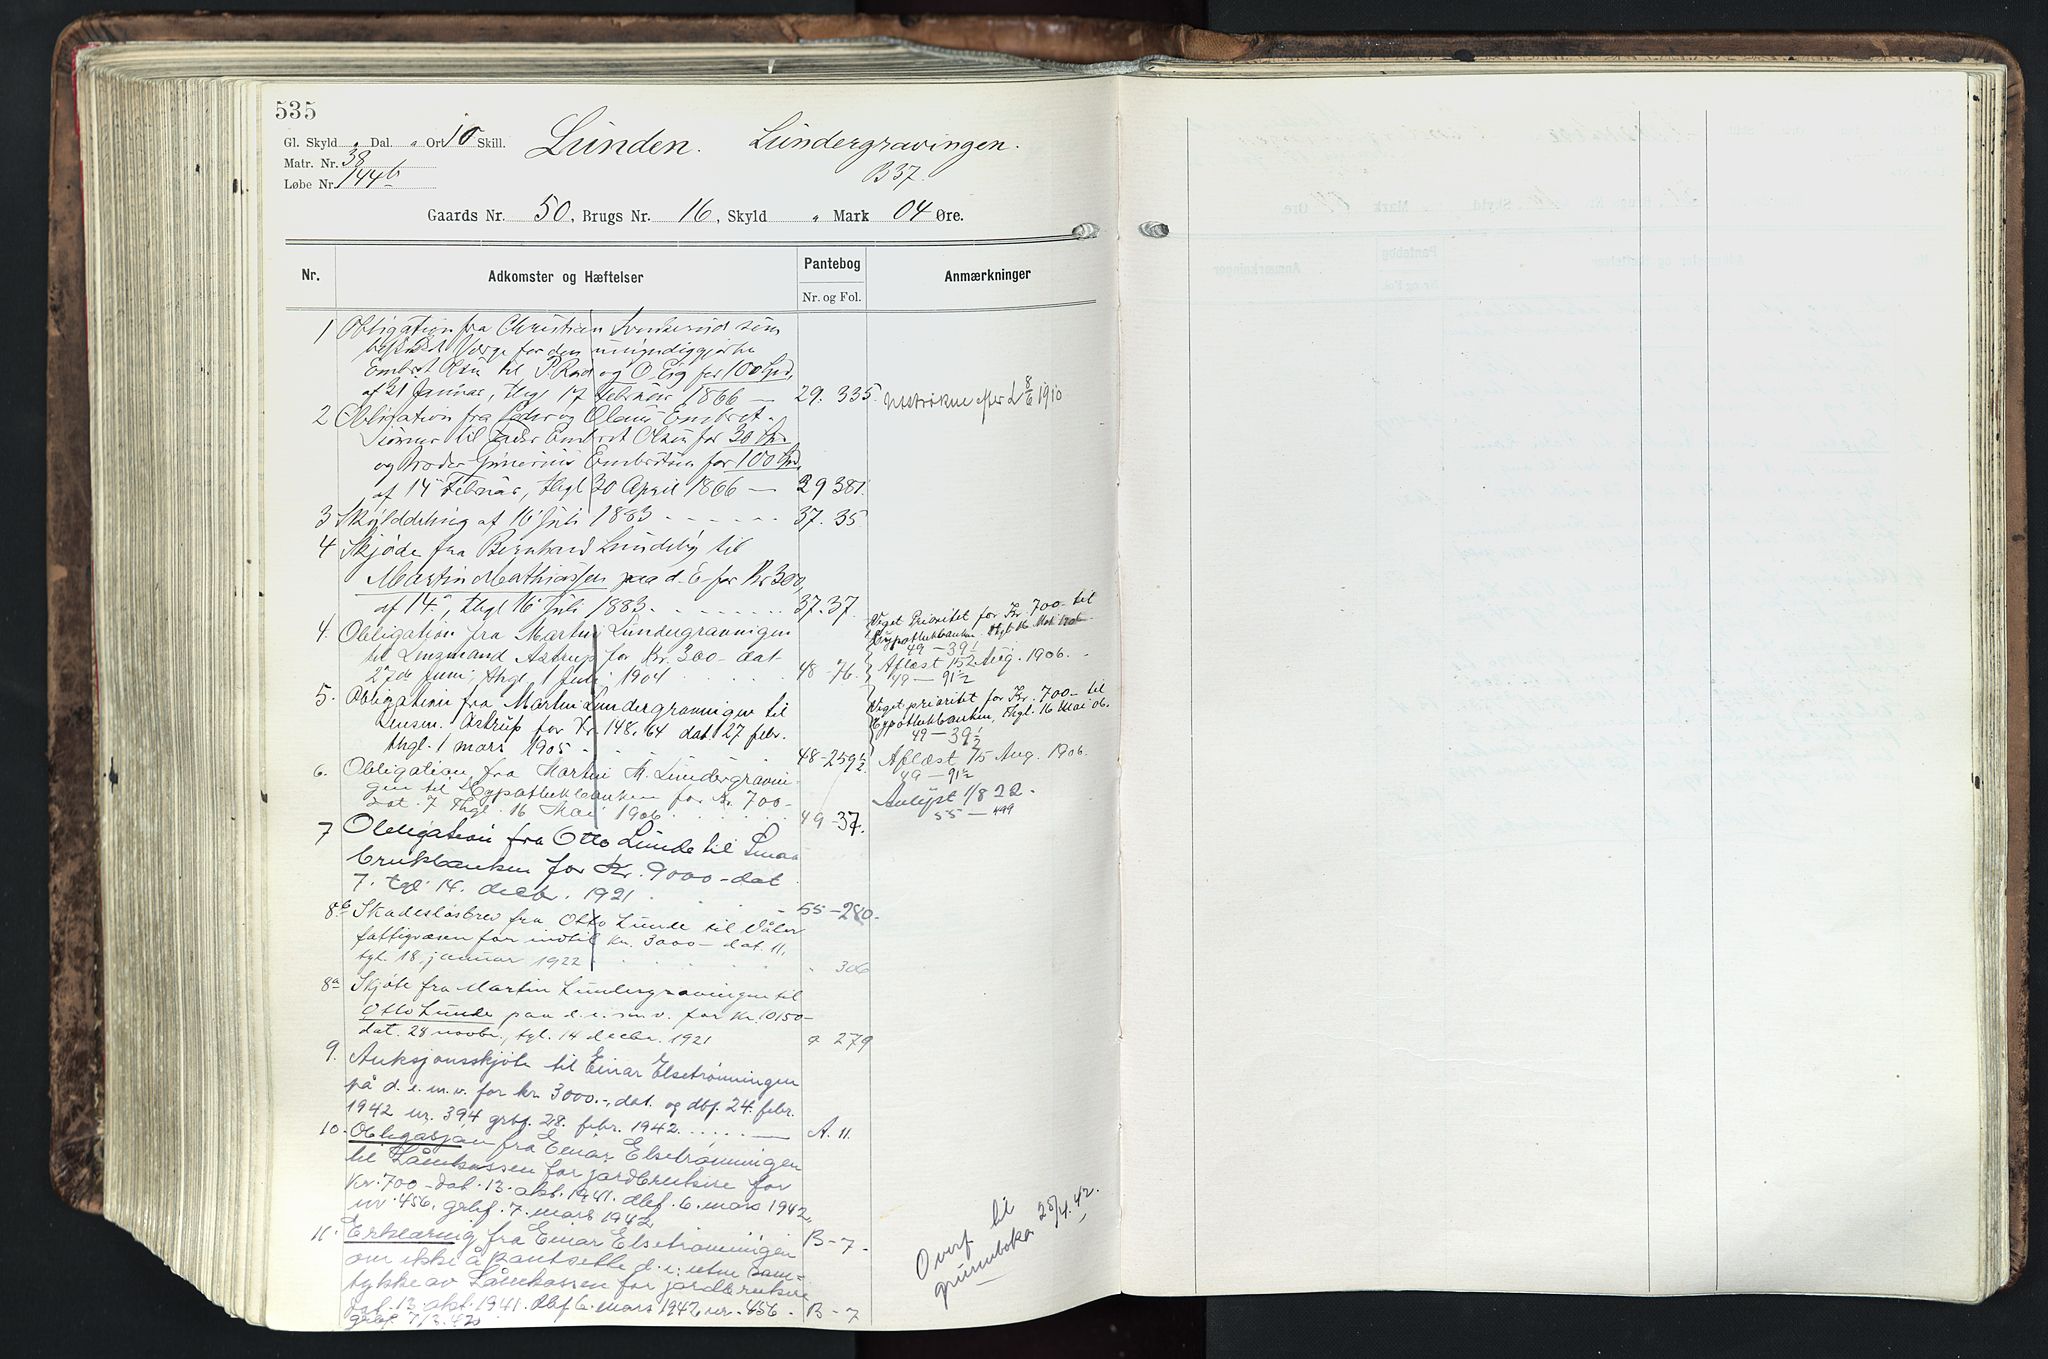 535
Gl. Skyld „ Dal. „ Ort 10 Skill.
Matr. Nr. 38
Løbe Nr. 144b
Lunden. Lundergravingen.
B37.
Gaards Nr. 50, Brugs Nr. 16, Skyld „ Mark 04 Øre.
Nr. Adkomster og Hæftelser Pantebog Anmærkninger
Nr. og Fol.
1 Obligation fra Christian som
Værge for den umyndiggjorte
Embret Olsen til P. Rud og O. Eig for 100 Spd,
af 31 Januar, thgl 17 Februar 1866 — 29. 335. Udstrøkne efter L 8/6 1910
2 Obligation fra Peder og Olaus Embret-
sønner til Fader Embret Olsen for 30
og Broder Gunerius Embretsen for 100 Spd.
af 14 Februar, thgl 30 April 1866 — 29 381.
3 Skylddeling af 16 Juli 1883 - - - - - - 37. 35
4 Skjøde fra Bernhard Lundeby til
Martin Mathiassen paa d. E. for Kr 300,
af 14., thgl 16 Juli 1883. - - - - - - 37. 37.
4. Obligation fra Martin Lundergravningen
til Lensmand Astrup for Kr. 300- dat
27de Juni, thgl 1 Juli 1904 . . . . . 48 - 76.
Viget Prioritet for Kr. 700- til
Hypothekbanken. thgl. 16. Mai 1906.
49 — 39½
Aflæst 15 Aug. 1906.
49 — 91½
5. Obligation fra Martin Lundergravningen til
Lensm. Astrup for Kr. 148,64 dat. 27 febr.
thgl. 1 mars 1905 - - - 48-259½
Viget prioritet for Kr. 700- til
Hypothekbanken, Thgl. 16 Mai 06.
49 — 39½
Aflæst 15 Aug. 1906.
49 — 91½
6. Obligation fra Martin M. Lundergravnin-
gen til Hypothekbanken for Kr. 700-
Dat. 7 Thgl. 16 Mai 1906. . . . . . 49-37.
Avlyst 1/8 22.
55 — 499
7 Obligation fra Otto Lunde til Smaa
brukbanken for Kr. 9000-dat
7. tgl. 14. decbr. 1921 . . . 55-280.
8b Skadesløsbrev fra Otto Lunde til Våler
fattigvæsen for indtil kr. 3000- dat. 11,
tgl. 18. januar 1922 . . . . . „ 306
8a Skjøte fra Martin Lundergravningen til
Otto Lunde paa d. e. m. v. for kr. 10150-
dat. 28 novbr., tgl. 14 decbr. 1921 „ 279
9. Auksjonsskjøte til Einar Elsetrønningen
på d. e. m. v. for kr. 3000.-, dat. og dbf. 24. febr.
1942 nr. 394 grbf. 28. febr. 1942. . . . . . — A. 11.
10. Obligasjon fra Einar Elsetrønningen
til Lånekassen for jordbrukere for
Kr. 700 - dat. 13. okt. 1941. dbf. 6. mars 1942,
nr. 456, grbf. 7. mars 1942 B - 7 -
11. Erklæring fra Einar Elsetrønningen
om ikke å pantsette d. e. uten sam-
tykke av Lånekassen for jordbrukere
dat. 13. okt. 1941. dbf 6. mars 1942 nr. 456 - B - 7
grbf. 7/3. 42.
Overf. til
grunnboka 25/4. 42.